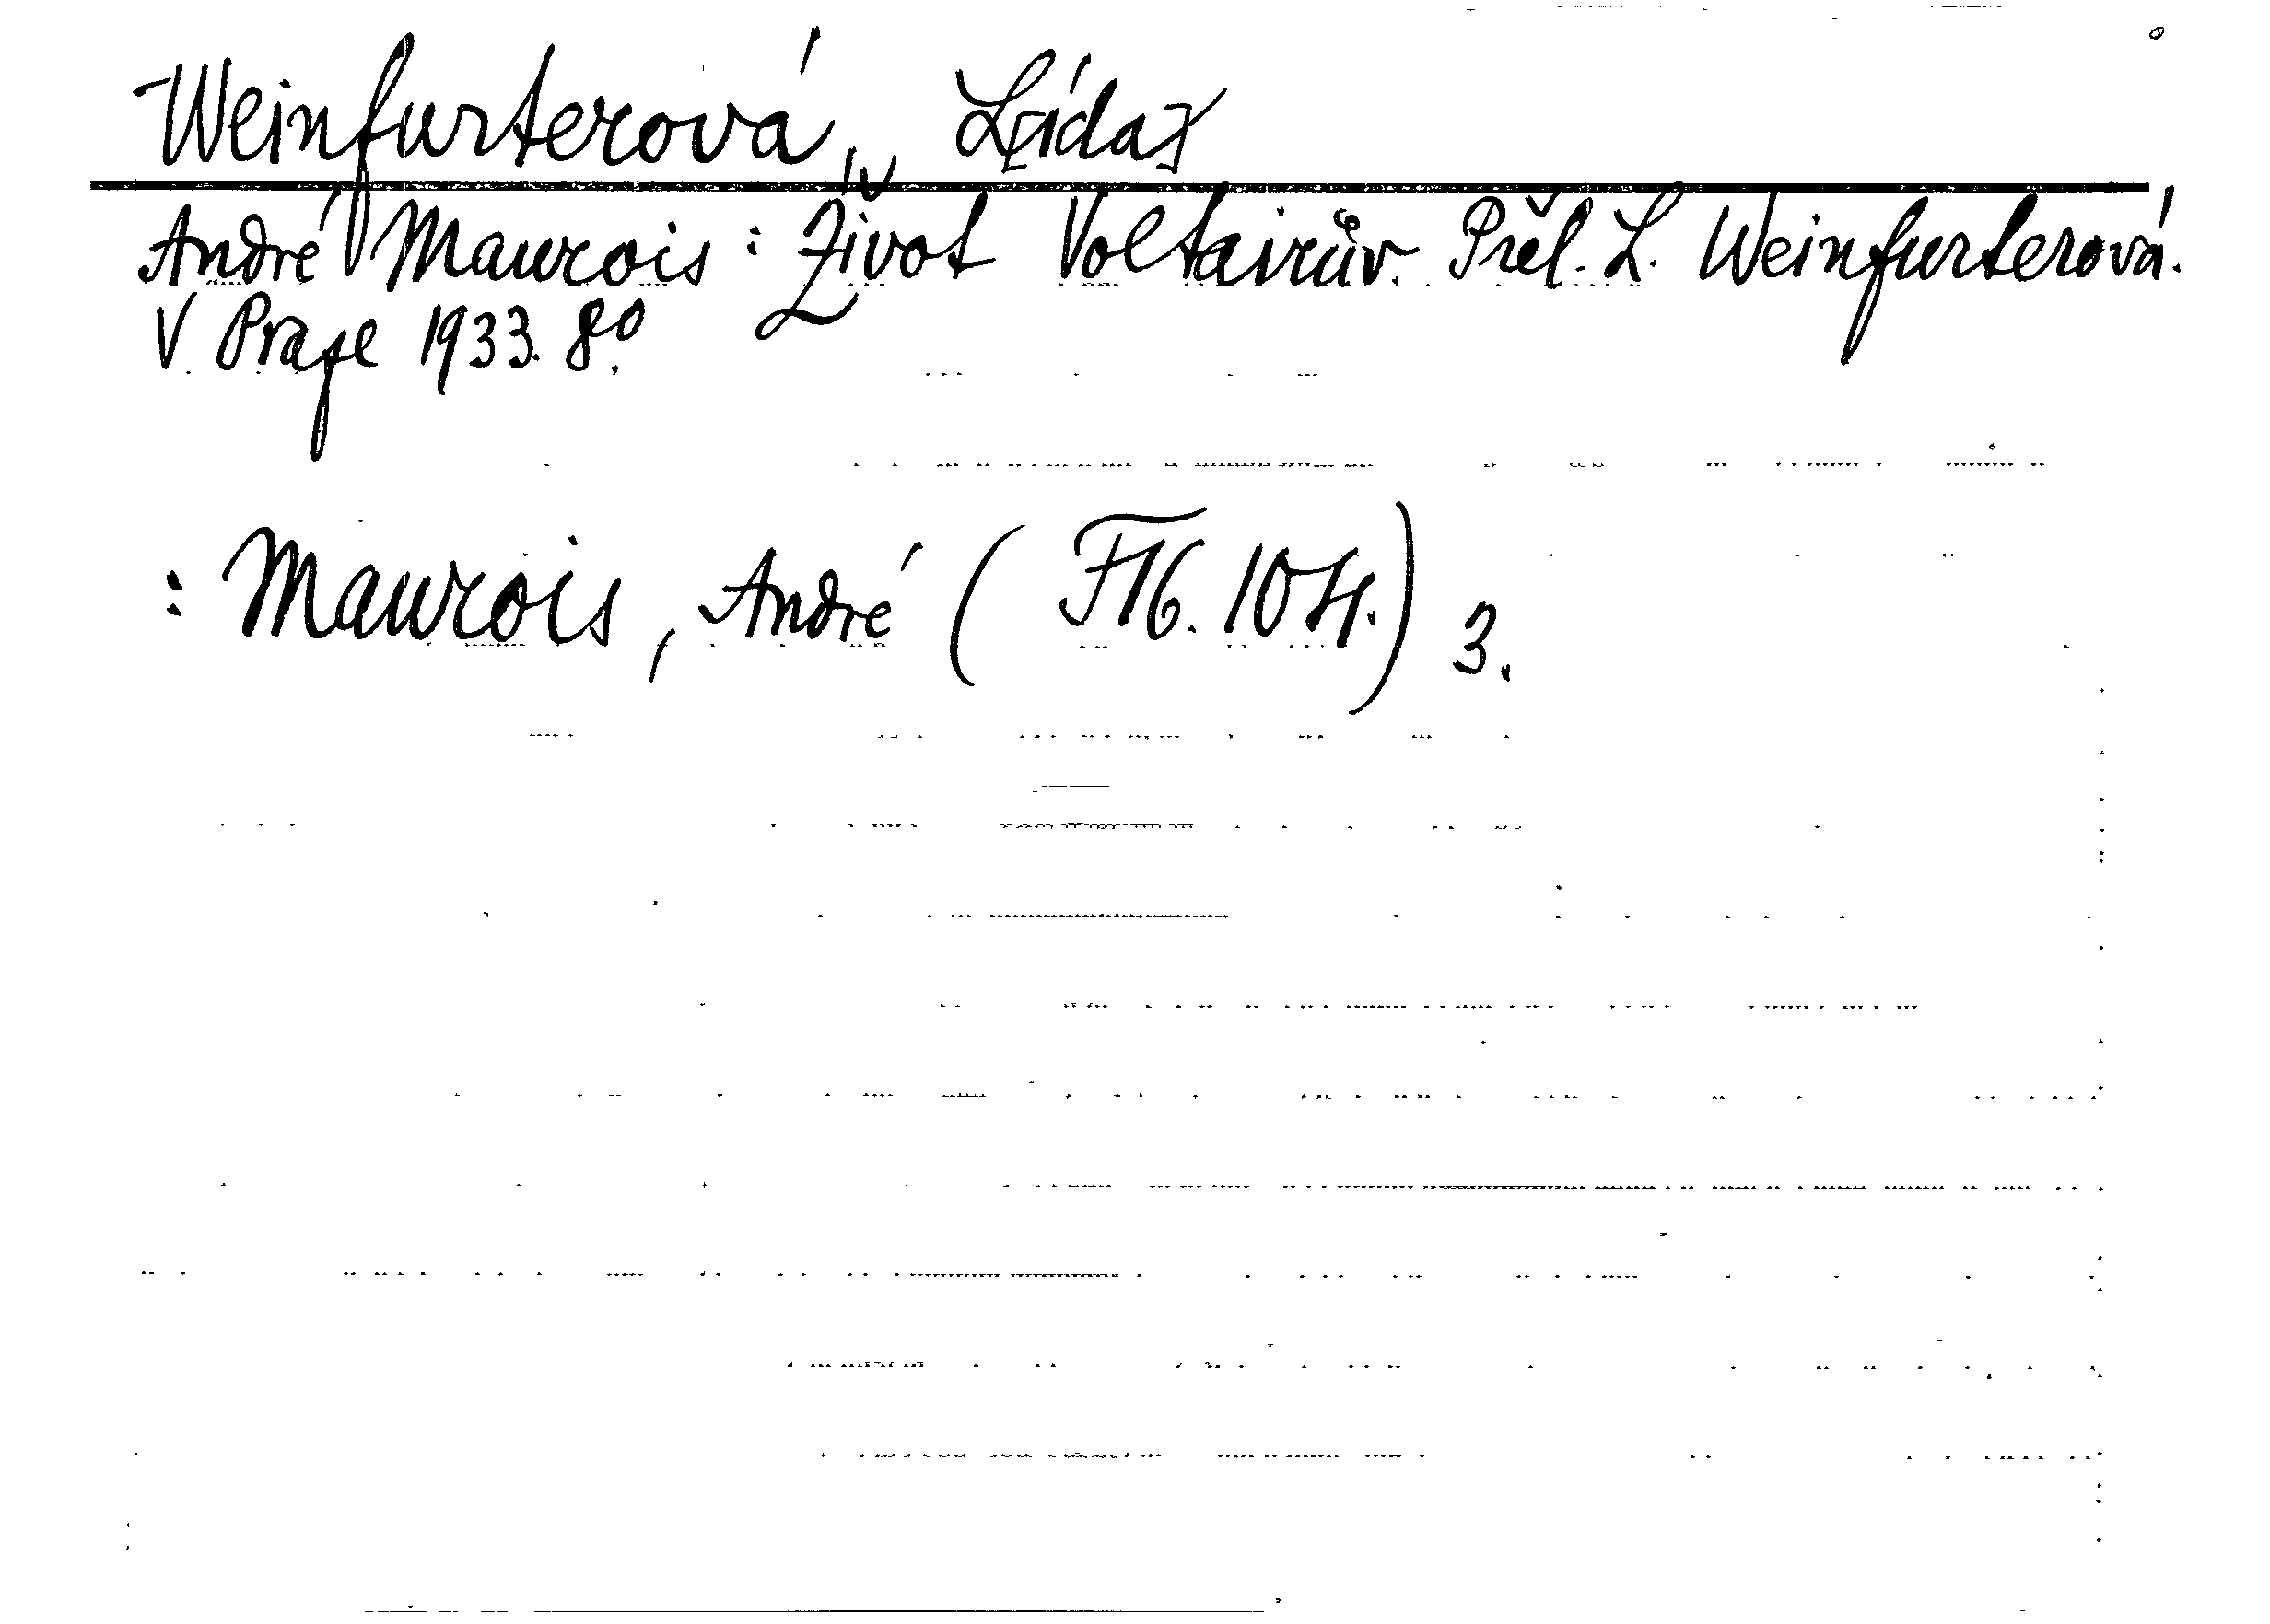 Weinfurterová, L[ída]
André Maurois: Život Voltairův. Přel. L. Weinfurterová.
V Praze 1933. 8°.
: Maurois, André (F16.104.) 3.